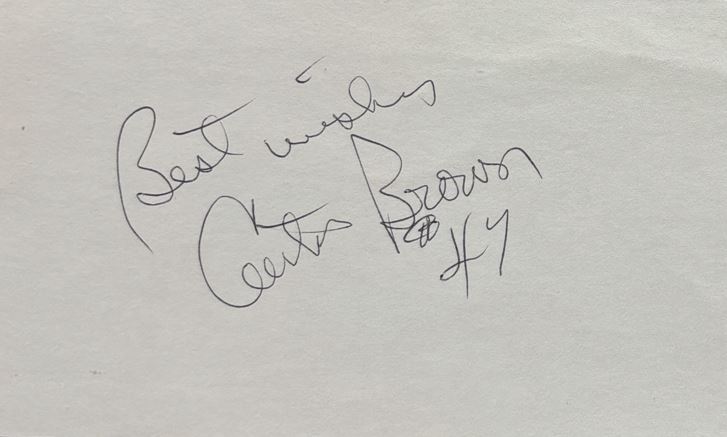 Best wishes
Curtis Brown
#47